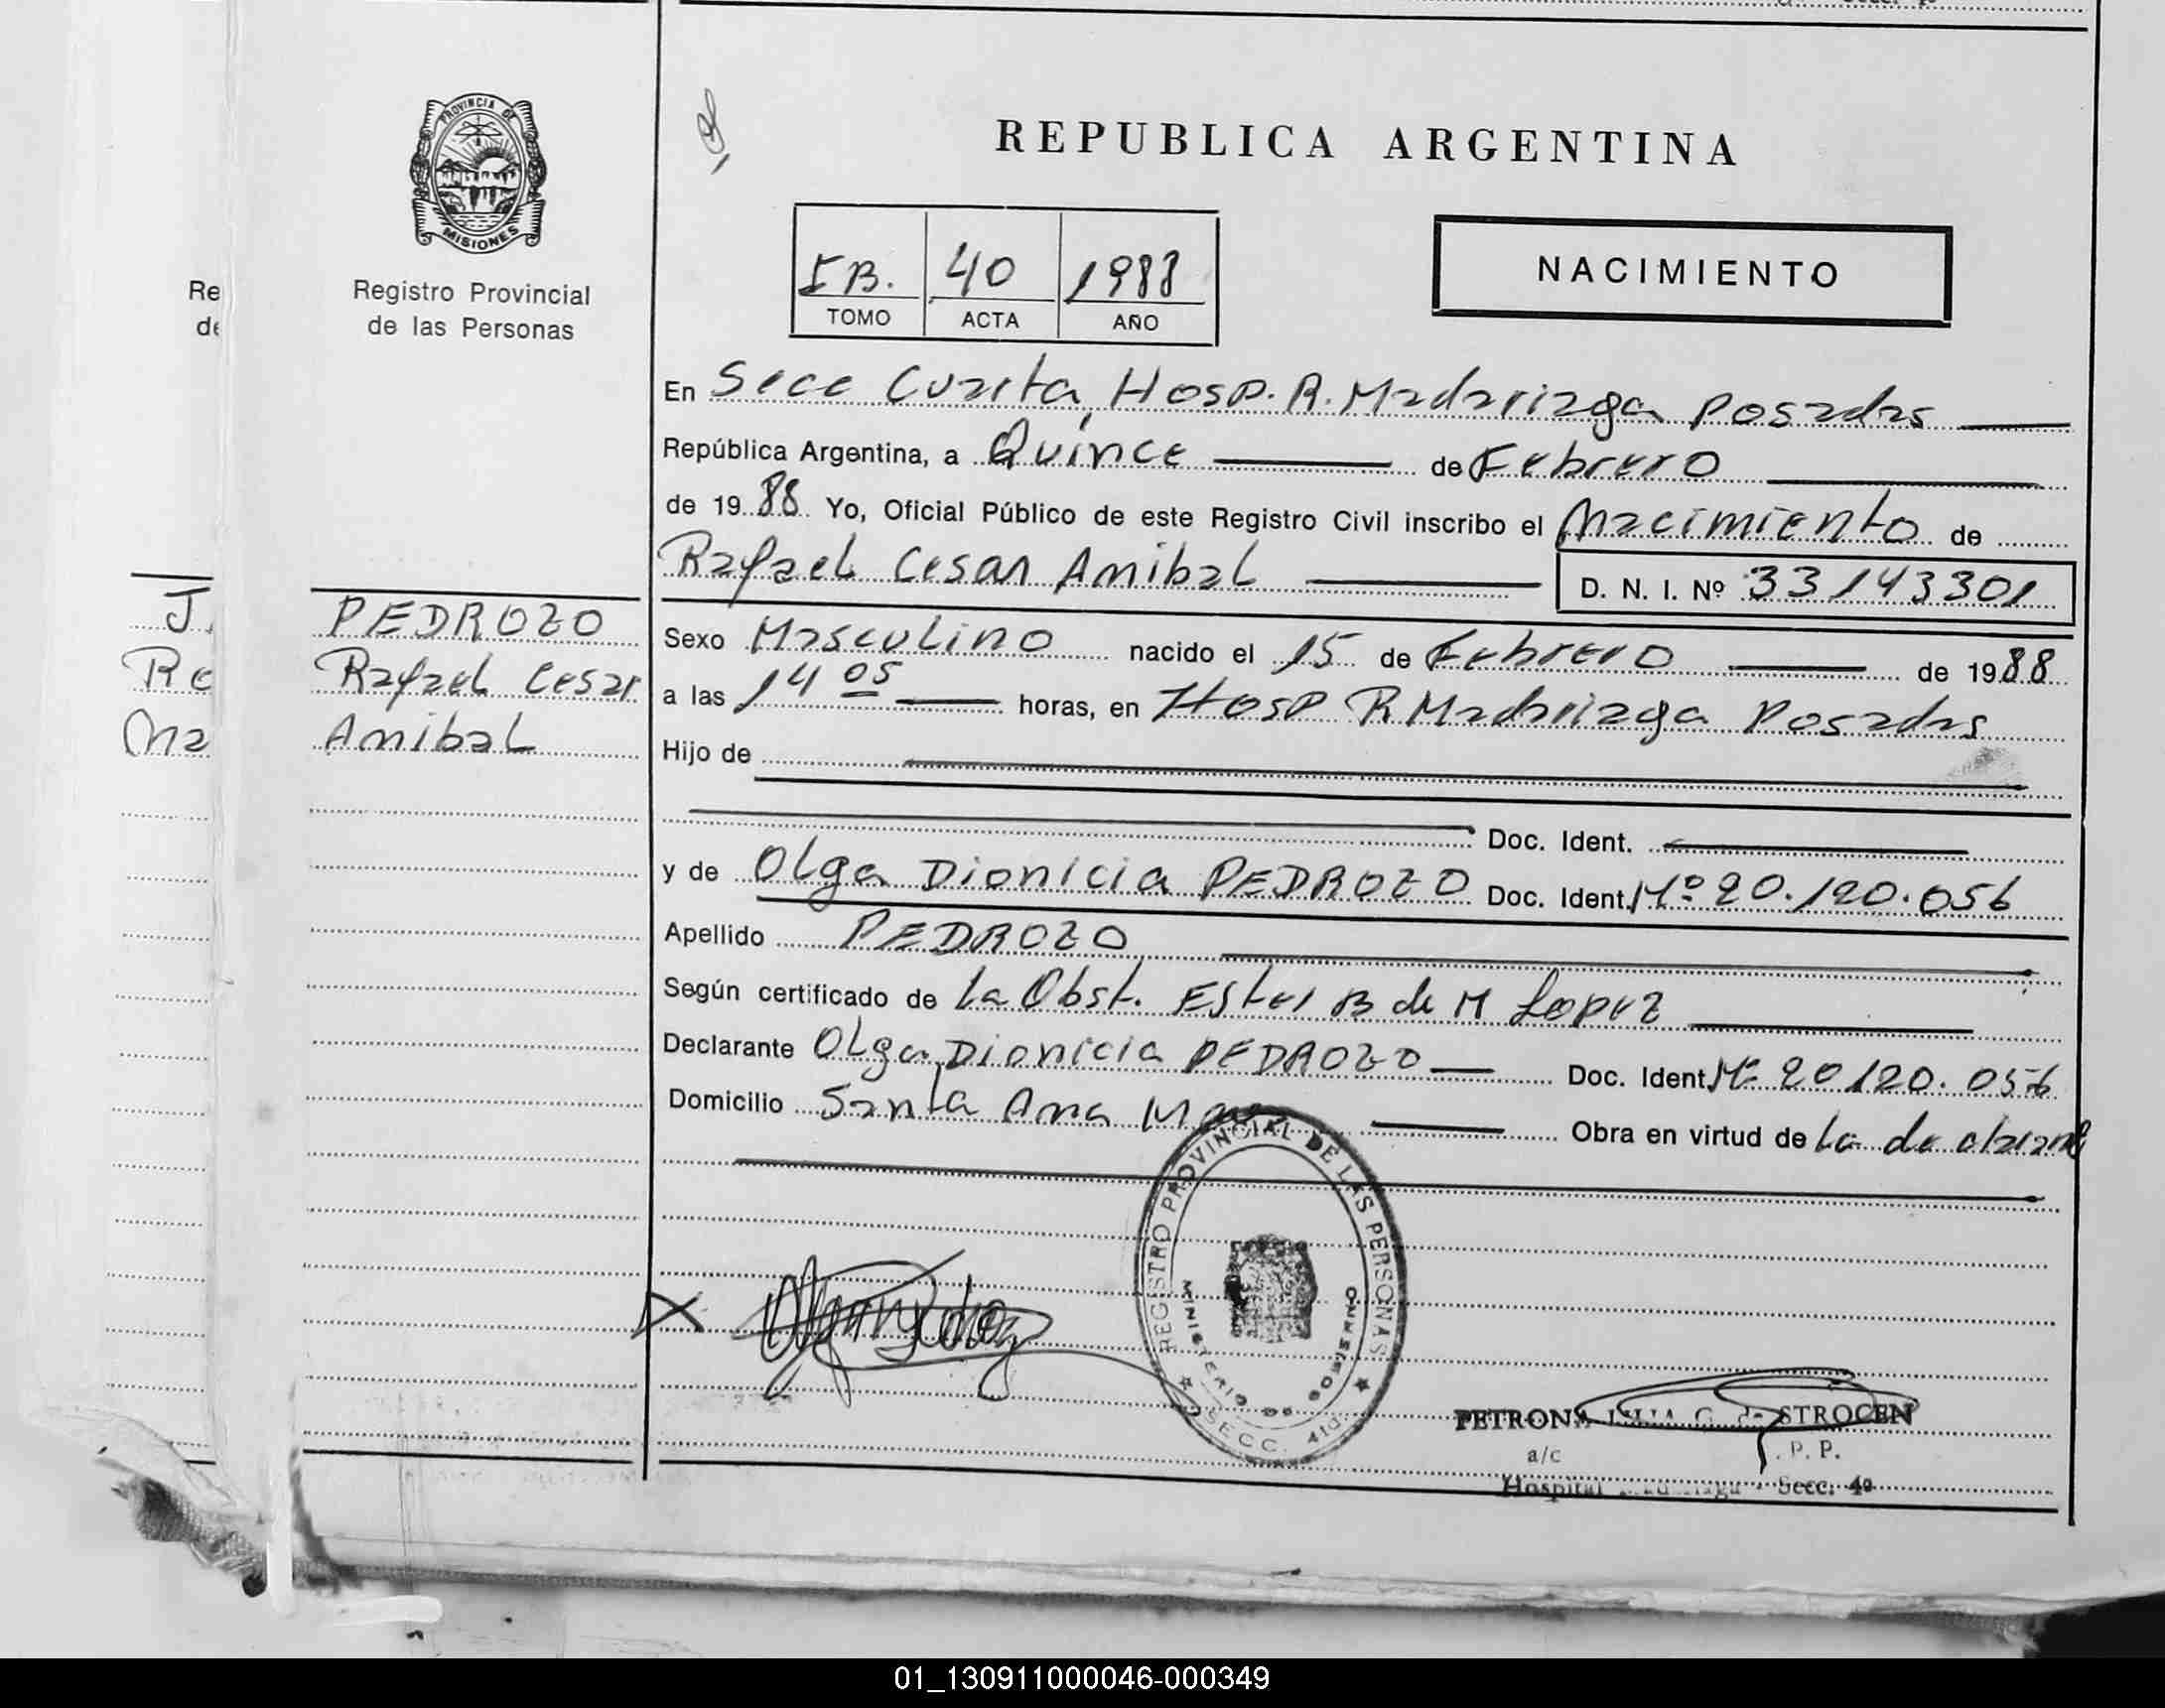 PROVINCIA DE
MISIONES
Registro Provincial
de las Personas
Re
de
J.
Re
PEDROZO
Rafael Cesar
Anibal
REPUBLICA ARGENTINA
I B. 40 1988
TOMO ACTA AÑO
NACIMIENTO
En Secc Cuarta Hosp. R. Madariaga Posadas
República Argentina, a Quince de Febrero
de 1988 Yo, Oficial Público de este Registro Civil inscribo el Nacimiento de
Rafael Cesar Anibal D. N. I. Nº 33143301
Sexo Masculino nacido el 15 de Febrero de 1988
a las 14 05 horas, en Hosp R Madariaga Posadas
Hijo de
Doc. Ident.
y de Olga Dionicia PEDROZO Doc. Ident. Nº 20.120.056
Apellido PEDROZO
Según certificado de La Obst. Ester B de M Lopez
Declarante Olga Dionicia PEDROZO Doc. Ident Nº 20120.056
Domicilio Santa Ana Mnes Obra en virtud de La declarante
REGISTRO PROVINCIAL DE LAS PERSONAS
MINISTERIO DE GOBIERNO
SECC. 4ta
PETRONA G. de STROCEN
a/c R. P. P.
Hospital Madariaga - Secc. 4ª
01_130911000046-000349